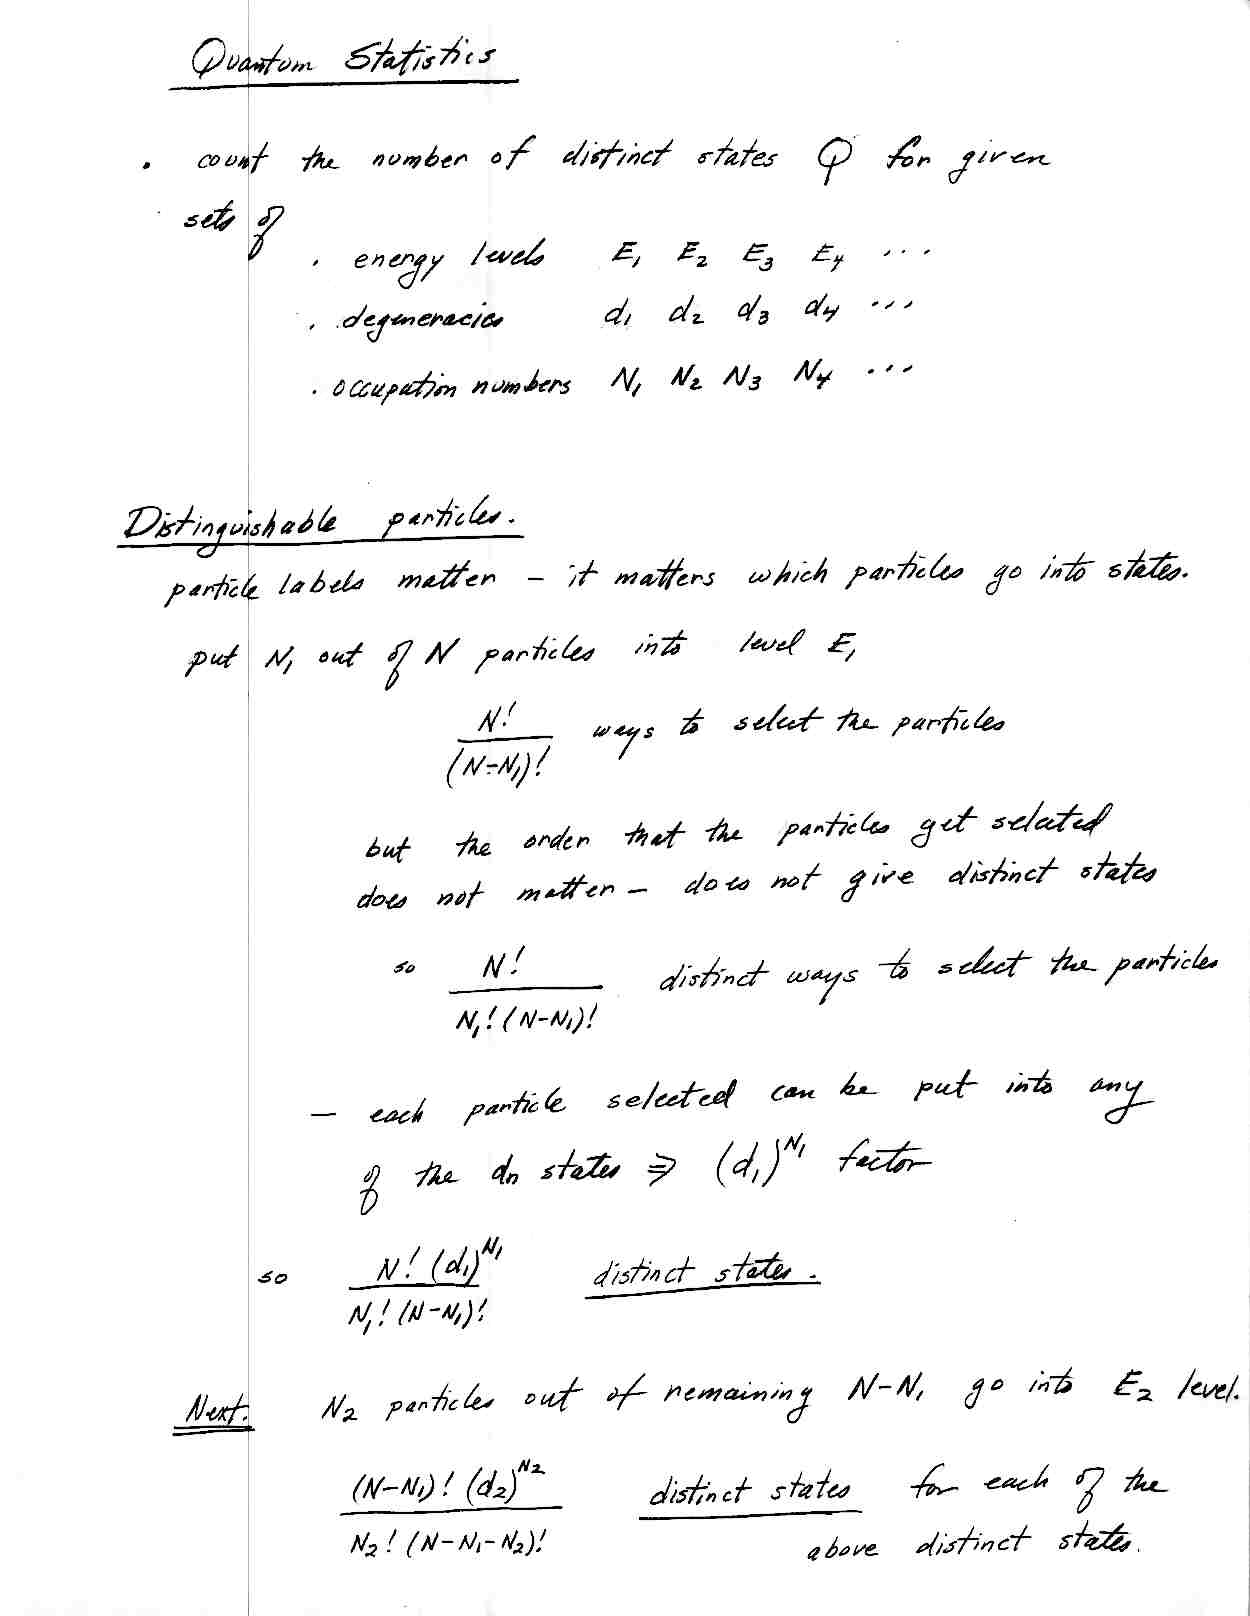 Quantum Statistics
. count the number of distinct states Q for given
sets of
. energy levels E₁ E₂ E₃ E₄ ...
. degeneracies d₁ d₂ d₃ d₄ ...
. occupation numbers N₁ N₂ N₃ N₄ ...
Distinguishable particles.
particle labels matter – it matters which particles go into states.
put N₁ out of N particles into level E₁
N! / (N-N₁)! ways to select the particles
but the order that the particles get selected
does not matter – does not give distinct states
so N! / N₁! (N-N₁)! distinct ways to select the particles
– each particle selected can be put into any
of the dn states ⇒ (d₁)^N₁ factor
so N! (d₁)^N₁ / N₁! (N-N₁)! distinct states.
Next. N₂ particles out of remaining N-N₁ go into E₂ level.
(N-N₁)! (d₂)^N₂ / N₂! (N-N₁-N₂)! distinct states for each of the
above distinct states.